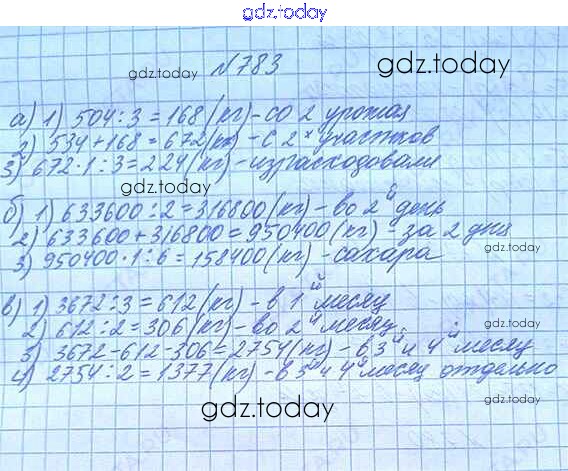 gdz.today
№783
gdz.today
gdz.today
а) 1) 504:3=168(кг)-со 2 урожая
2) 534+168=672(кг)-с 2х участков
3) 672·1:3=224(кг)-израсходовали
gdz.today
б) 1) 633600:2=316800(кг)-во 2й день
2) 633600+316800=950400(кг)-за 2 дня
3) 950400·1:6=158400(кг)-сахара
gdz.today
в) 1) 3672:3=612(кг)-в 1й месяц
2) 612:2=306(кг)-во 2й месяц
3) 3672-612-306=2754(кг)-в 3й и 4й месяц
4) 2754:2=1377(кг)-в 3й и 4й месяц отдельно
gdz.today
gdz.today
gdz.today